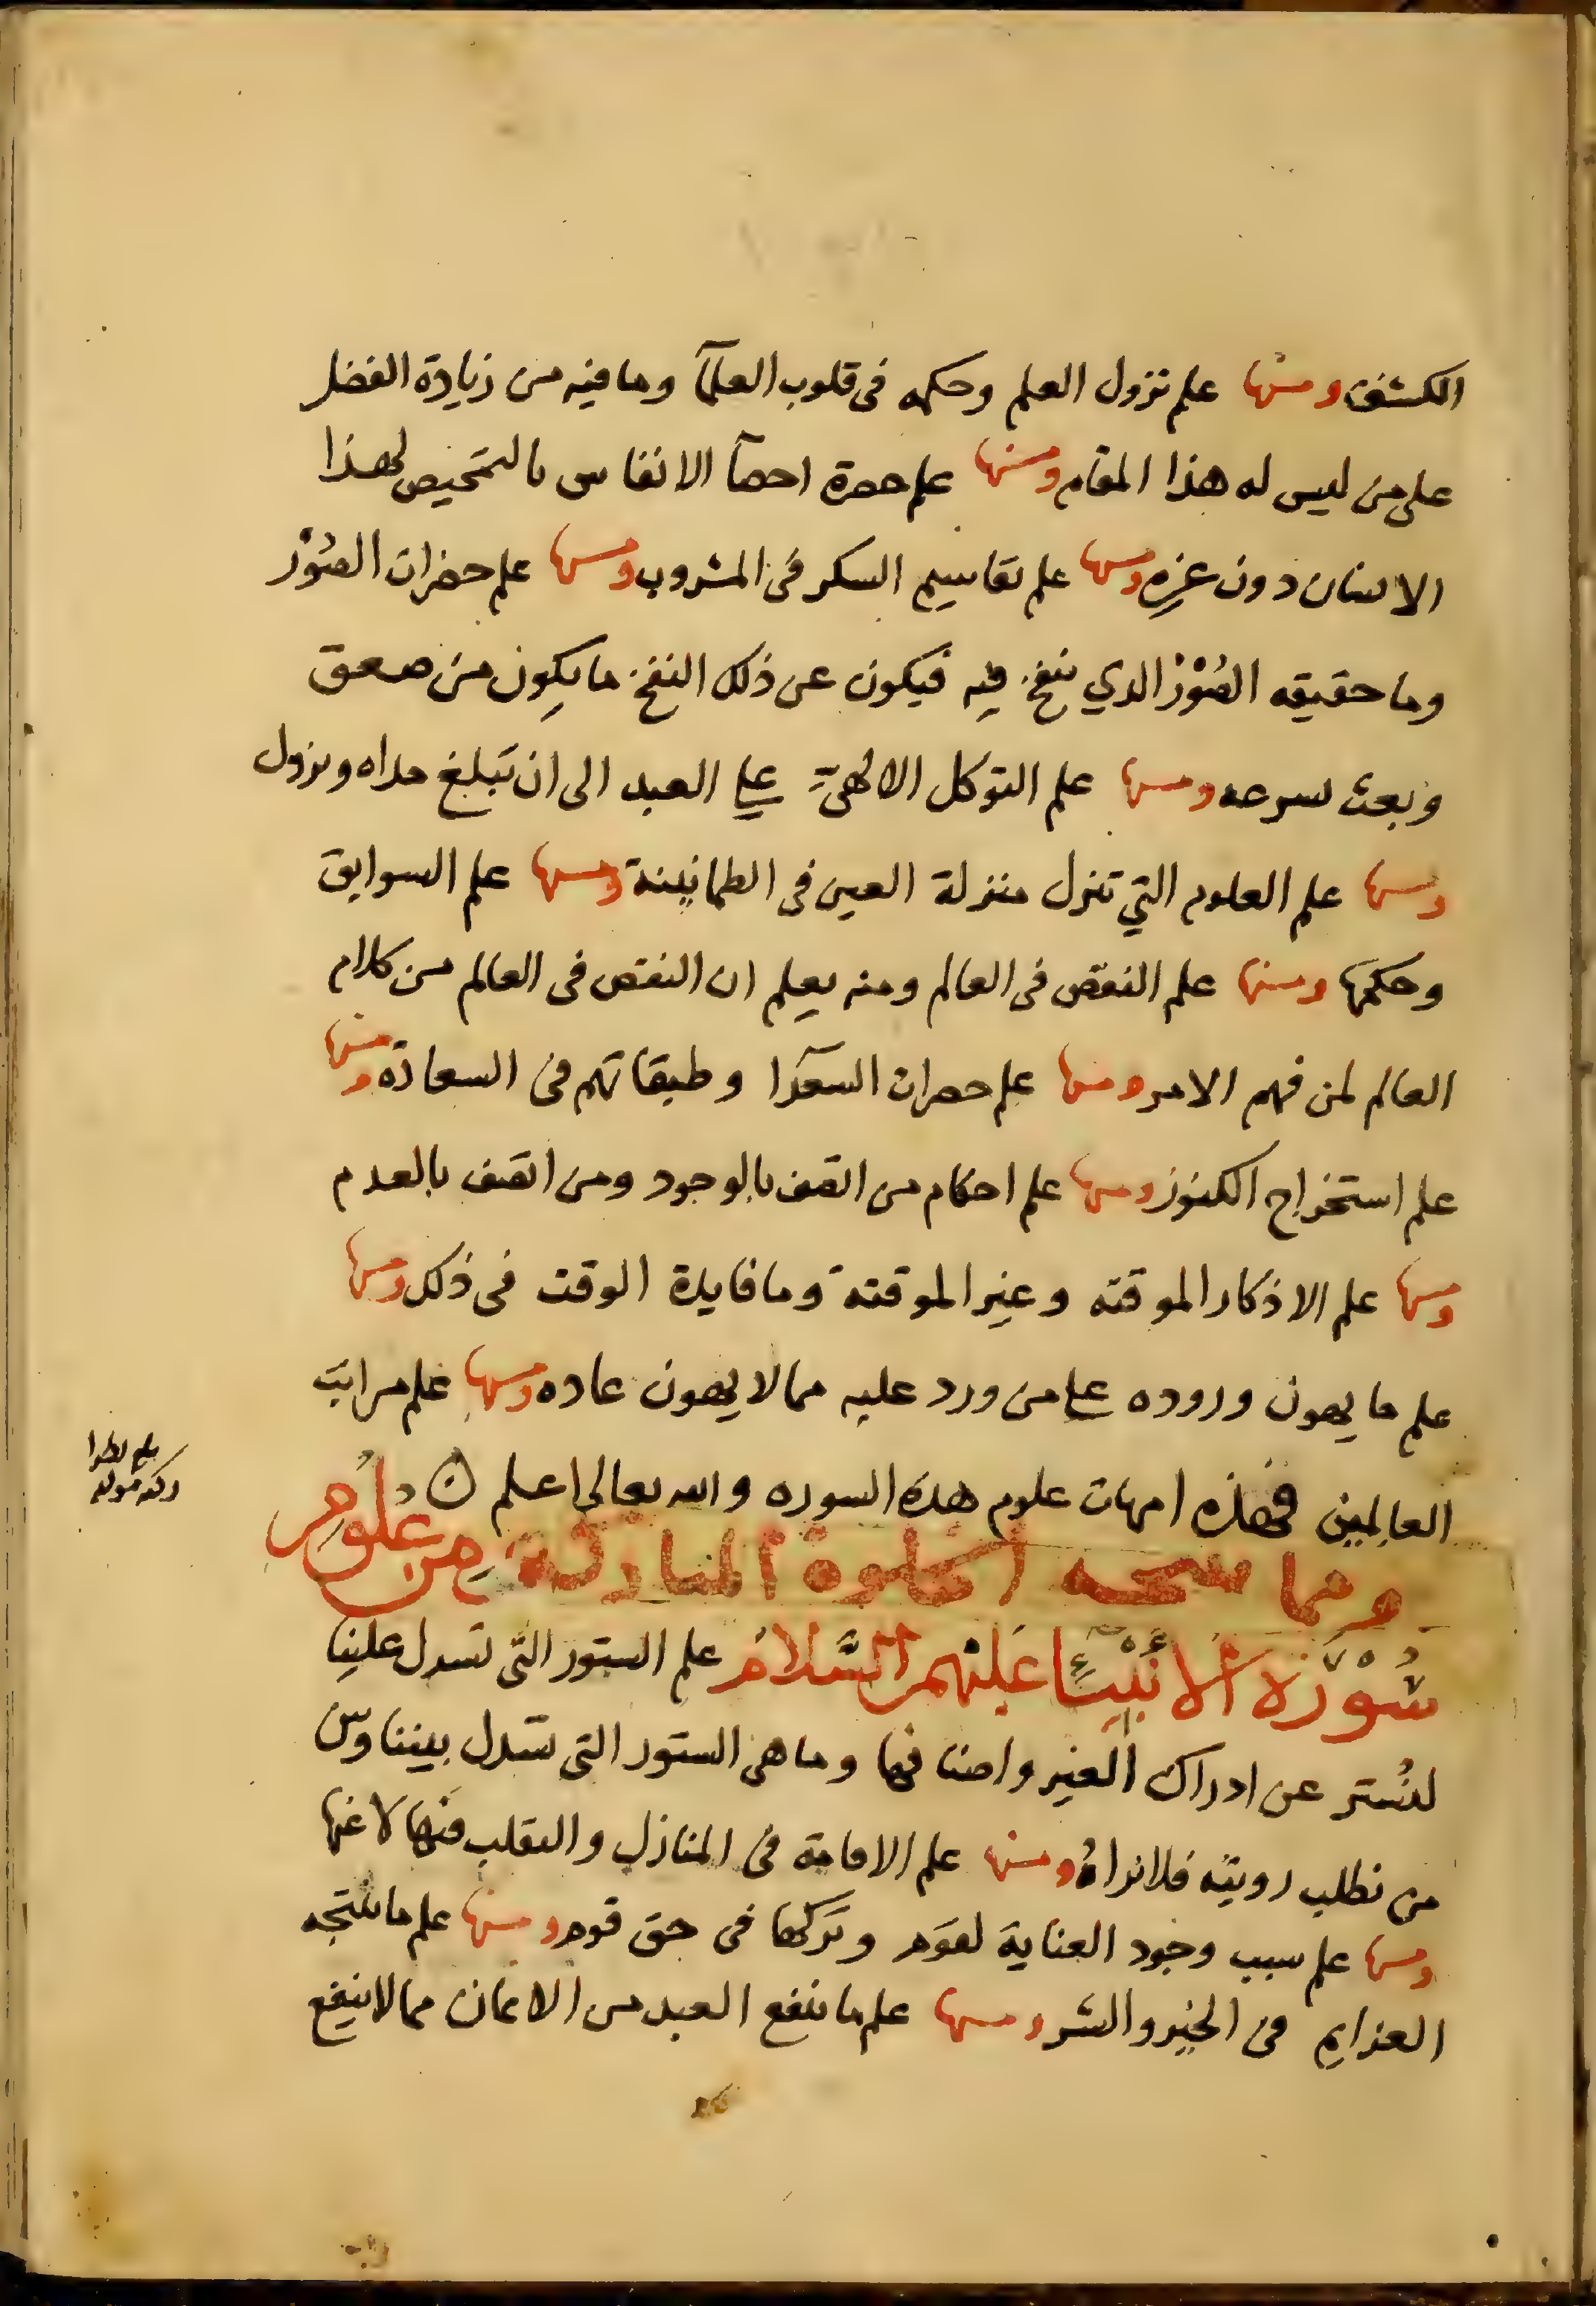 الكشف ومنها علم نزول العلم وحكمه فى قلوب العلمآ وما فيه من زيادة الفضل
على من ليس له هذا المقام ومنها علم حصرة احصآ الانفاس بالتمحيص لهذا
الانسان دون غيره ومنها علم تقاسيم السكر فى المشروب ومنها علم حضرات الصُوْر
وما حقيقه الصُوْر الدي ينفخ فيه فيكون عن ذلك النفخ ما يكون من صعق
وبعث بسرعه ومنها علم التوكل الالهىّ على العبد الى ان تبلغ مداه ونزول
ومنها علم العلوم التي تنزل منزلة العين فى الطمانينة ومنها علم السوابق
وحكمها ومنها علم النقص فى العالم ومنه يعلم ان النقص فى العالم من كلام
العالم لمن فهم الامر ومنها علم حصرات السعدآ وطبقاتهم فى السعادة ومنها
علم استخراج الكنوز ومنها علم احكام من اتصف بالوجود ومن اتصف بالعدم
ومنها علم الاذكار الموقته وغير الموقتة وما فايدة الوقت فى ذلك ومنها
علم ما يهون وروده على من ورد عليه مما لا يهون عاده ومنها علم مراتب
العالمين فهذه امهات علوم هذه السوره والله تعالى اعلم
ومما الخلوة المباركة من علوم
سُوْرَة الانبيآء عليهم السَّلام علم الستور التى تسدل علينا
لنُستر عن ادراك الغير واصنافها وما هى الستور التى تسدل بيننا وبين
من نطلب رويته فلا نراهُ ومنها علم الاقامة فى المنازل والتقلب فيها لا عنها
ومنها علم سبب وجود العناية لقوم وتركها فى حق قوم ومنها علم ما ينتجه
العزايم فى الخير والشر ومنها علم ما ينفع العبد من الايمان مما لا ينفع